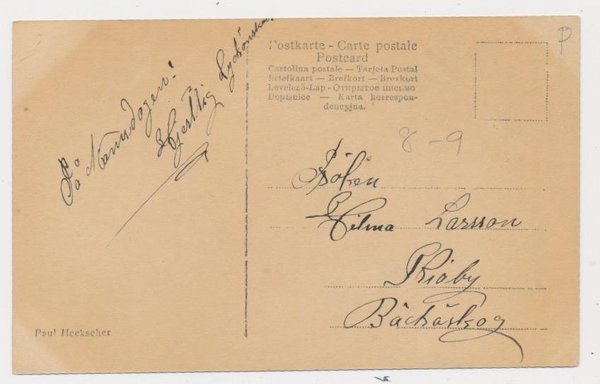 På Namnsdagen!
Hjertlig Lyckönskan
Postkarte - Carte postale
Postcard
Cartolina postale — Tarjeta Postal
Brefkort — Brevkort
Levelező-Lap - Открытое письмо
Dopisnice — Karta korrespon-
dencyjna.
P
8-9
Fröken
Hilma Larsson
Kiaby
Bäckaskog
Paul Heckscher